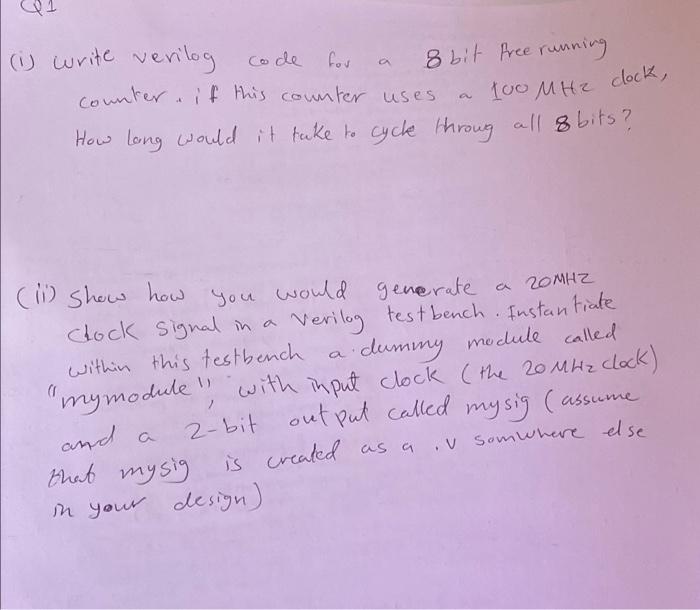 Q1
(i) write verilog code for a 8 bit free running
counter. if this counter uses a 100 MHz clock,
How long would it take to cycle throug all 8 bits?
(ii) Show how you would generate a 20MHZ
Clock signal in a verilog testbench. Instantiate
within this testbench a dummy module called
"mymodule", with input clock (the 20 MHz clock)
and a 2-bit output called mysig (assume
that mysig is created as a .v somwhere else
in your design)